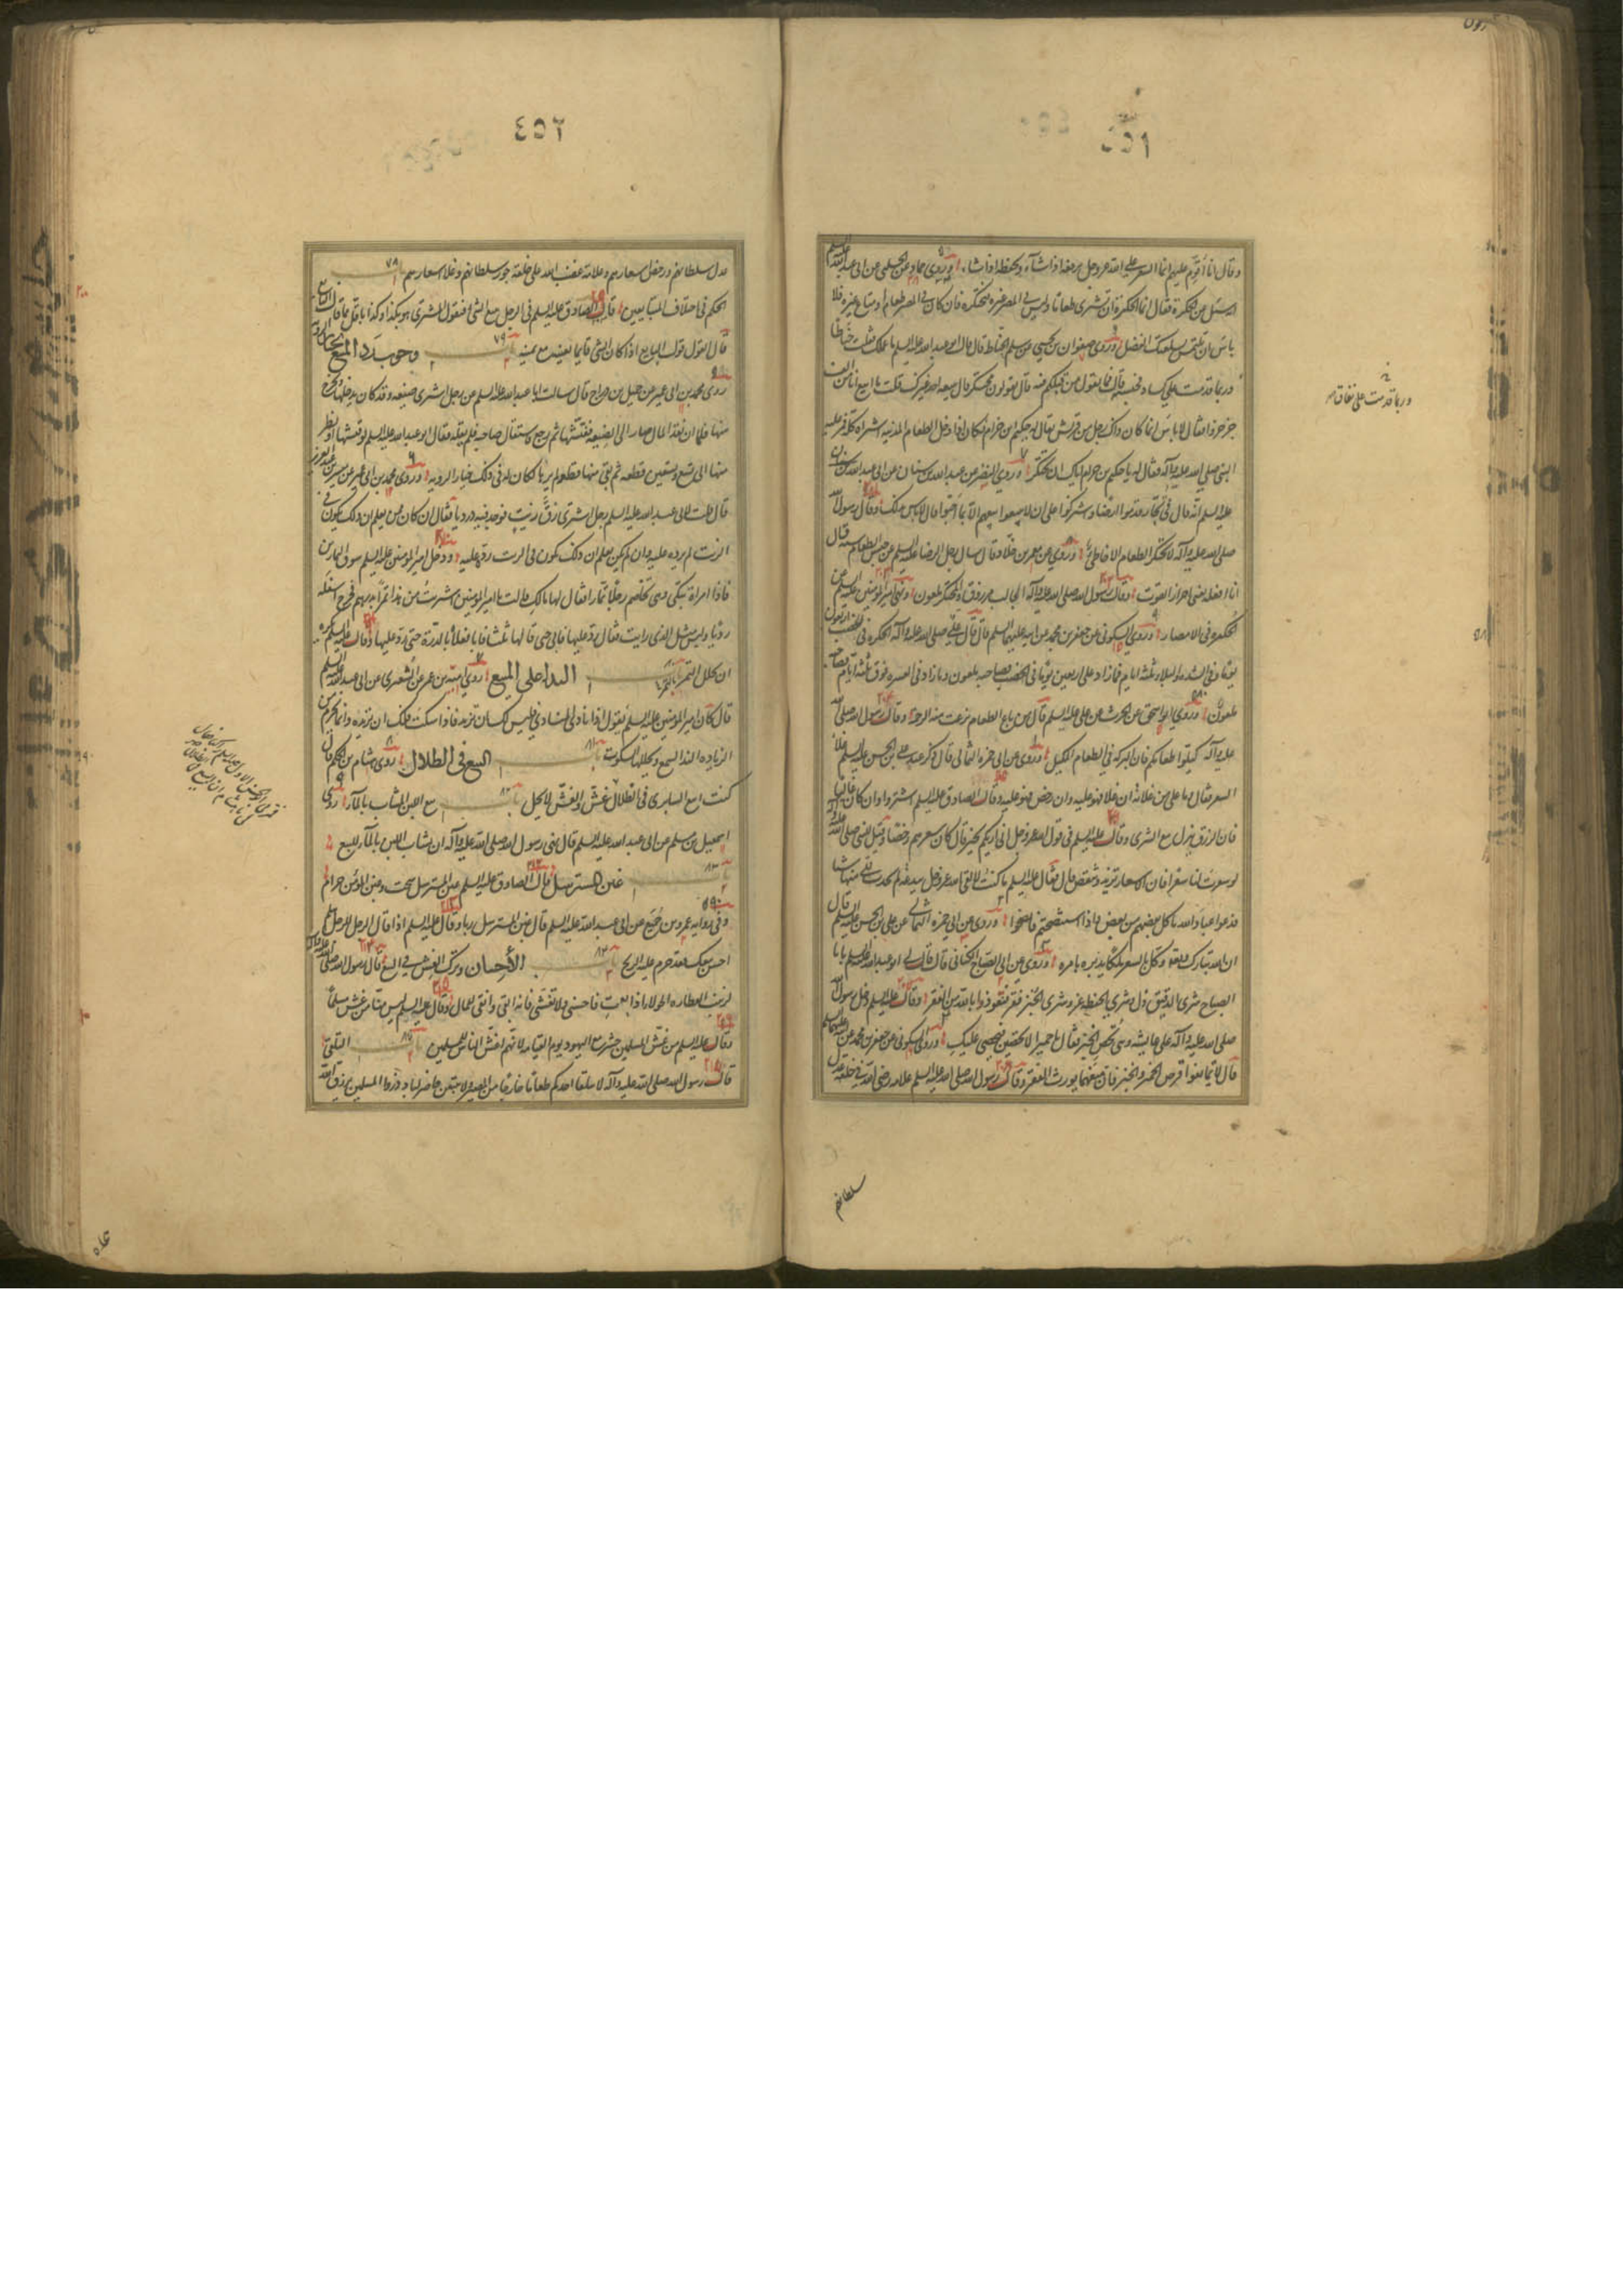 ٤٥١
وقال انا اقوم عليهم انما السعر على الله عز وجل يرفعه اذا شاء ويخفضه اذا شاء وروى حماد عن الحلبي عن ابي عبد الله عليه السلم
انه سئل عن الحكرة فقال انما الحكرة ان تشتري طعاما وليس في المصر غيره فتحتكره فان كان في المصر طعام او متاع غيره فلا
باس ان تلتمس بسلعتك الفضل وروى صفوان بن يحيى عن سلم الحناط قال قال ابو عبد الله عليه السلم ما عملك قلت حناطا
وربما قدمت على كساد فحبسته قال فما يقول من قبلكم فيه قال يقولون محتكر قال يبيعه احد غيرك قلت ما ابيع انا من الف
جزء جزءا فقال لا باس انما كان ذلك رجل من قريش يقال له حكيم بن حزام وكان اذا دخل الطعام المدينة اشتراه كله فمر عليه
النبي صلى الله عليه وآله فقال له يا حكيم بن حزام اياك ان تحتكر وروى النضر عن عبد الله بن سنان عن ابي عبد الله
عليه السلم انه قال في تجار قدموا ارضا وشتركوا على ان لا يبيعوا بيعهم الا بما احبوا قال لا باس بذلك وقال رسول الله
صلى الله عليه وآله لا يحتكر الطعام الا خاطئ وروى عن معمر بن خلاد قال سال رجل الرضا عليه السلم عن حبس الطعام سنة قال
انا افعله يعني احراز القوت وقال رسول الله صلى الله عليه وآله الجالب مرزوق والمحتكر ملعون ونهى امير المؤمنين عليه السلم عن
الحكره في الامصار وروى السكوني عن جعفر بن محمد عن ابيه عليهما السلم قال قال علي صلى الله عليه وآله الحكره في الخصب اربعون
يوما وفي الشدة والبلاء ثلثة ايام فما زاد على اربعين يوما في الخصب فصاحبه ملعون وما زاد في العسره فوق ثلثة ايام فصاحبه
ملعون وروى ابو اسحق عن الحرث عن علي عليه السلم قال من باع الطعام نزعت منه الرحمة وقال رسول الله صلى الله
عليه وآله كيلوا طعامكم فان البركة في الطعام المكيل وروى عن ابي حمزه الثمالي قال ذكر عند علي بن الحسين عليه السلم غلاء
السعر فقال وما علي من غلائه ان غلا فهو عليه وان رخص فهو عليه وقال الصادق عليه السلم اشتروا وان كان غاليا
فان الرزق ينزل مع الشرى وقال عليه السلم في قول الله عز وجل اني اريكم بخير قال كان سعرهم رخيصا وقيل للنبي صلى الله عليه وآله
لو سعرت لنا سعرا فان الاسعار تزيد وتنقص قال فقال عليه السلم ما كنت لالقى الله عز وجل ببدعة لم يحدث لي فيها شيئا
فدعوا عباد الله ياكل بعضهم من بعض واذا استنصحتم فانصحوا وروى عن ابي حمزه الثمالي عن علي بن الحسين عليه السلم قال
ان الله تبارك وتعالى وكل بالسعر ملكا يدبره بامره وروى عن ابي الصباح الكناني قال قال لي ابو عبد الله عليه السلم يا با
الصباح شرى الدقيق ذل وشري الحنطة عز وشرى الخبز فقر فنعوذ بالله من الفقر وقال عليه السلم دخل رسول الله
صلى الله عليه وآله على عايشه وهي تحصى الخبز فقال يا حميرا لا تحصين فيحصى عليك وروى السكوني عن جعفر بن محمد عن ابيه عليهما السلم
قال لا تمانعوا قرض الخمير والخبز فان منعهما يورث الفقر وقال رسول الله صلى الله عليه السلم علامة رضى الله في خلقه عدل
وربما قدمت على نفاق
سلطانهم
٤٥٢
عدل سلطانهم ورخص اسعارهم وعلامة غضب الله على خلقه جور سلطانهم وغلا اسعارهم باب ٧٨
الحكم في اختلاف المتبايعين قال الصادق عليه السلم في الرجل يبيع الشئ فيقول المشترى هو بكذا وكذا باقل مما قال البايع
قال القول قول البايع اذا كان الشئ قايما بعينه مع يمينه باب ٧٩ وجوب رد المبيع
روى محمد بن ابي عمير عن جميل بن دراج قال سالت ابا عبد الله عليه السلم عن رجل اشترى ضيعه وقد كان يدخلها ويخرج
منها فلما ان نقد المال صار الى الضيعه ففتشها ثم رجع فاستقال صاحبه فلم يقله فقال ابو عبد الله عليه السلم لو فتشها او نظر
منها الى تسع وتسعين قطعه ثم بقي منها قطعه لم يرها لكان له في ذلك خيار الرويه وروى محمد بن ابي عمير عن ميسر بن عبد العزيز
قال قلت لابي عبد الله عليه السلم رجل اشترى زق زيت فوجد فيه درديا فقال ان كان ممن يعلم ان ذلك يكون في
الزيت لم يرده عليه وان لم يكن يعلم ان ذلك يكون في الزيت رده عليه ودخل امير المؤمنين عليه السلم سوق التمارين
فاذا امراة تبكي وهي تخاصم رجلا تمارا فقال لها مالك قالت يا امير المؤمنين اشتريت من هذا تمرا بدرهم فخرج اسفله
رديا وليس مثل الذي رايت فقال رد عليها فابى حتى قالها ثلثا فابى فعلاه بالدرة حتى رد عليها وقال عليه السلم يكره
ان يجلل التمر باب النداء على المبيع روى امية بن عمر عن الشعيري عن ابي عبد الله عليه السلم
قال كان امير المؤمنين عليه السلم يقول اذا نادى المنادي فليس لك ان تزيد فاذا سكت فلك ان تزيد وانما يحرم من
الزياده النداء السمع ويحللها السكوت باب ٨١ البيع في الظلال روى هشام بن الحكم قال
كنت ابيع السابري في الظلال غش والغش لا يحل باب ٨٢ بيع اللبن المشاب بالماء روى
اسمعيل بن مسلم عن ابي عبد الله عليه السلم قال نهى رسول الله صلى الله عليه وآله ان يشاب اللبن بالماء للبيع
باب ٨٣ غبن المسترسل قال الصادق عليه السلم غبن المسترسل سحت وغبن المؤمن حرام
وفي رواية عمرو بن جميع عن ابي عبد الله عليه السلم قال غبن المسترسل ربا وقال عليه السلم اذا قال الرجل للرجل هلم
احسن بيعك فقد حرم عليه الربح باب الأحسان وترك الغش في البيع قال رسول الله صلى الله عليه وآله
لزينب العطاره الحولاء اذا بعت فاحسنى ولا تغشى فانه اتقى وابقى للمال وقال عليه السلم ليس منا من غش مسلما
وقال عليه السلم من غش المسلمين حشر مع اليهود يوم القيامه لانهم اغش الناس للمسلمين باب التلقى
قال رسول الله صلى الله عليه وآله لا يتلقا احدكم طعاما خارجا من المصر ولا يبيعن حاضر لباد وذروا المسلمين يرزق الله